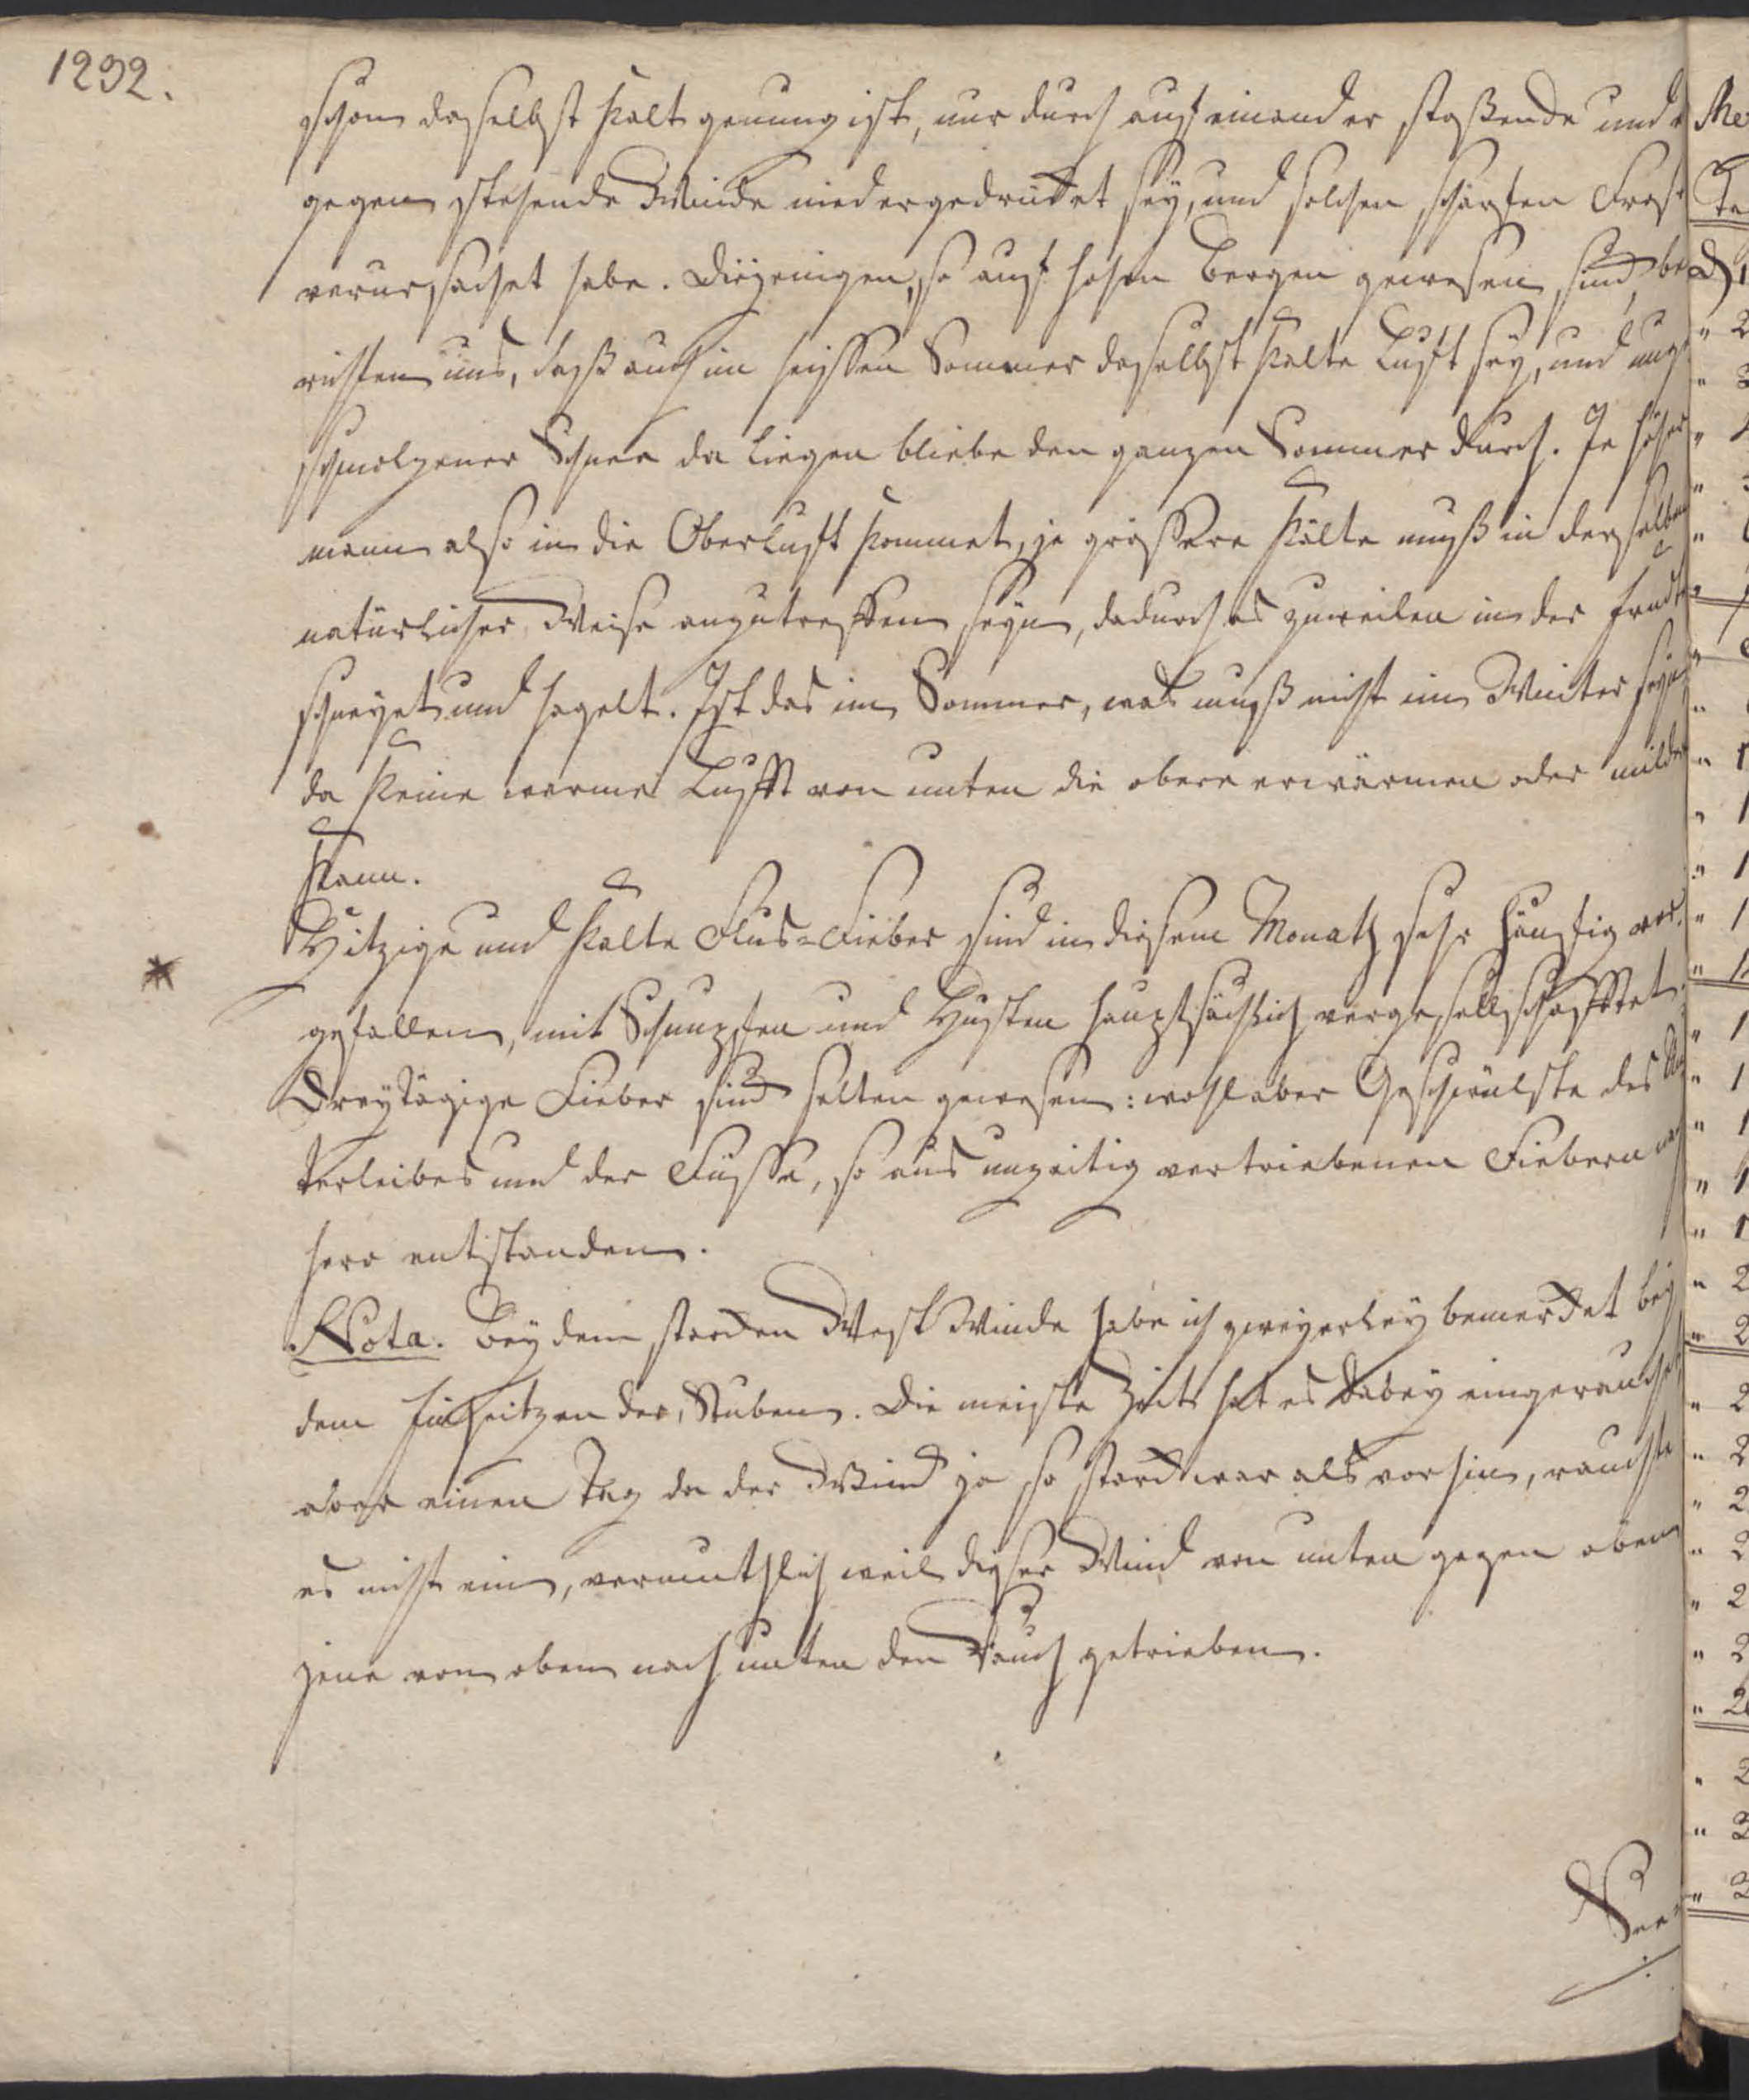 1292.
schon daselbst kalt genung ist, nur durch auf einander stoßende und
gegen stehende Winde niedergedrückt sey, und solchen scharfen Frost
verursachet habe. Diejenigen, so auf hohen Bergen gewesen sind, be
richten uns, daß auch im heissen Sommer daselbst kalte Luft sey, und unge
schmolzener Schnee da liegen bliebe den ganzen Sommer durch. Je höher
mann also in die Oberluft kommet, je grössere Kälte muß in derselben
natürlicher Weise anzutreffen seyn, dadurch es zuweilen in der
schneyet und hagelt. Ist das im Sommer, was muß nicht im Winter seyn
da keine warme Lufft von unten die obere erwärmen oder mildern
kann.
Hitzige und kalte Flus-Fieber sind in diesem Monath sehr häuffig vor
gefallen, mit Schnupfen und Husten hauptsächlich vergesellschafftet.
Dreytägige Fieber sind selten gewesen: wohl aber Geschwülste des Un
terleibes und der Füsse, so aus unzeitig vertriebenen Fiebern
herr entstanden.
Nota. Bey dem starcken West Winde habe ich zweyerley bemercket bey
dem Einheitzen der Stuben. Die meiste Zeit hat es dabey eingerauchet,
aber einen Tag da der Wind ja so starck war als vorhin, rauchte
es nicht ein, vermuthlich weil dieser Wind von unten gegen oben
jene von oben nach unten den Rauch getrieben.